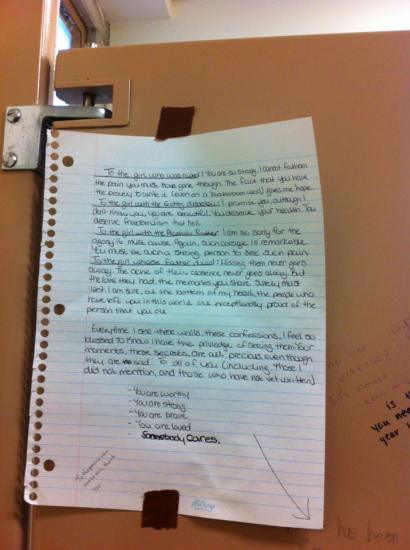 To the girl who was raped: You are so strong. I cannot fathom
the pain you must have gone through. The fact that you have
the bravery to write it (even on a bathroom wall) gives me hope.
To the girl with the eating disorder: I promise you, although I
don't know you, you are beautiful. You deserve your health. You
deserve freedom from that hell.
To the girl with the father: I am so sorry for the
agony it must cause. Again, such courage is remarkable.
You must be such a strong person to endure such pain.
To the girl whose father died: Missing them never goes
away. The ache of their absence never goes away. But
the love they had, the memories you share surely must
last. I am sure, at the bottom of my heart, the people who
have left you in this world are exceptionally proud of the
person that you are.
Everytime I see these walls, these confessions, I feel so
blessed to know I have the priviledge of seeing them. Your
memories, these secrets, are all precious, even though
they are sad. To all of you (including those I
did not mention, and those who have not yet written)
- You are worthy
- You are strong
- You are brave
- You are loved
- Somebody Cares.
To the person who
wrote this, thank
you
Hilroy
is th
you nee
year l
has been